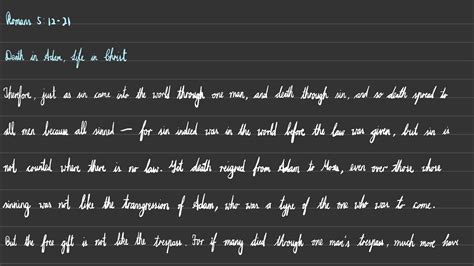 Romans 5:12-21
Death in Adam, Life in Christ
Therefore, just as sin came into the world through one man, and death through sin, and so death spread to
all men because all sinned — for sin indeed was in the world before the law was given, but sin is
not counted where there is no law. Yet death reigned from Adam to Moses, even over those whose
sinning was not like the transgression of Adam, who was a type of the one who was to come.
But the free gift is not like the trespass. For if many died through one man's trespass, much more have